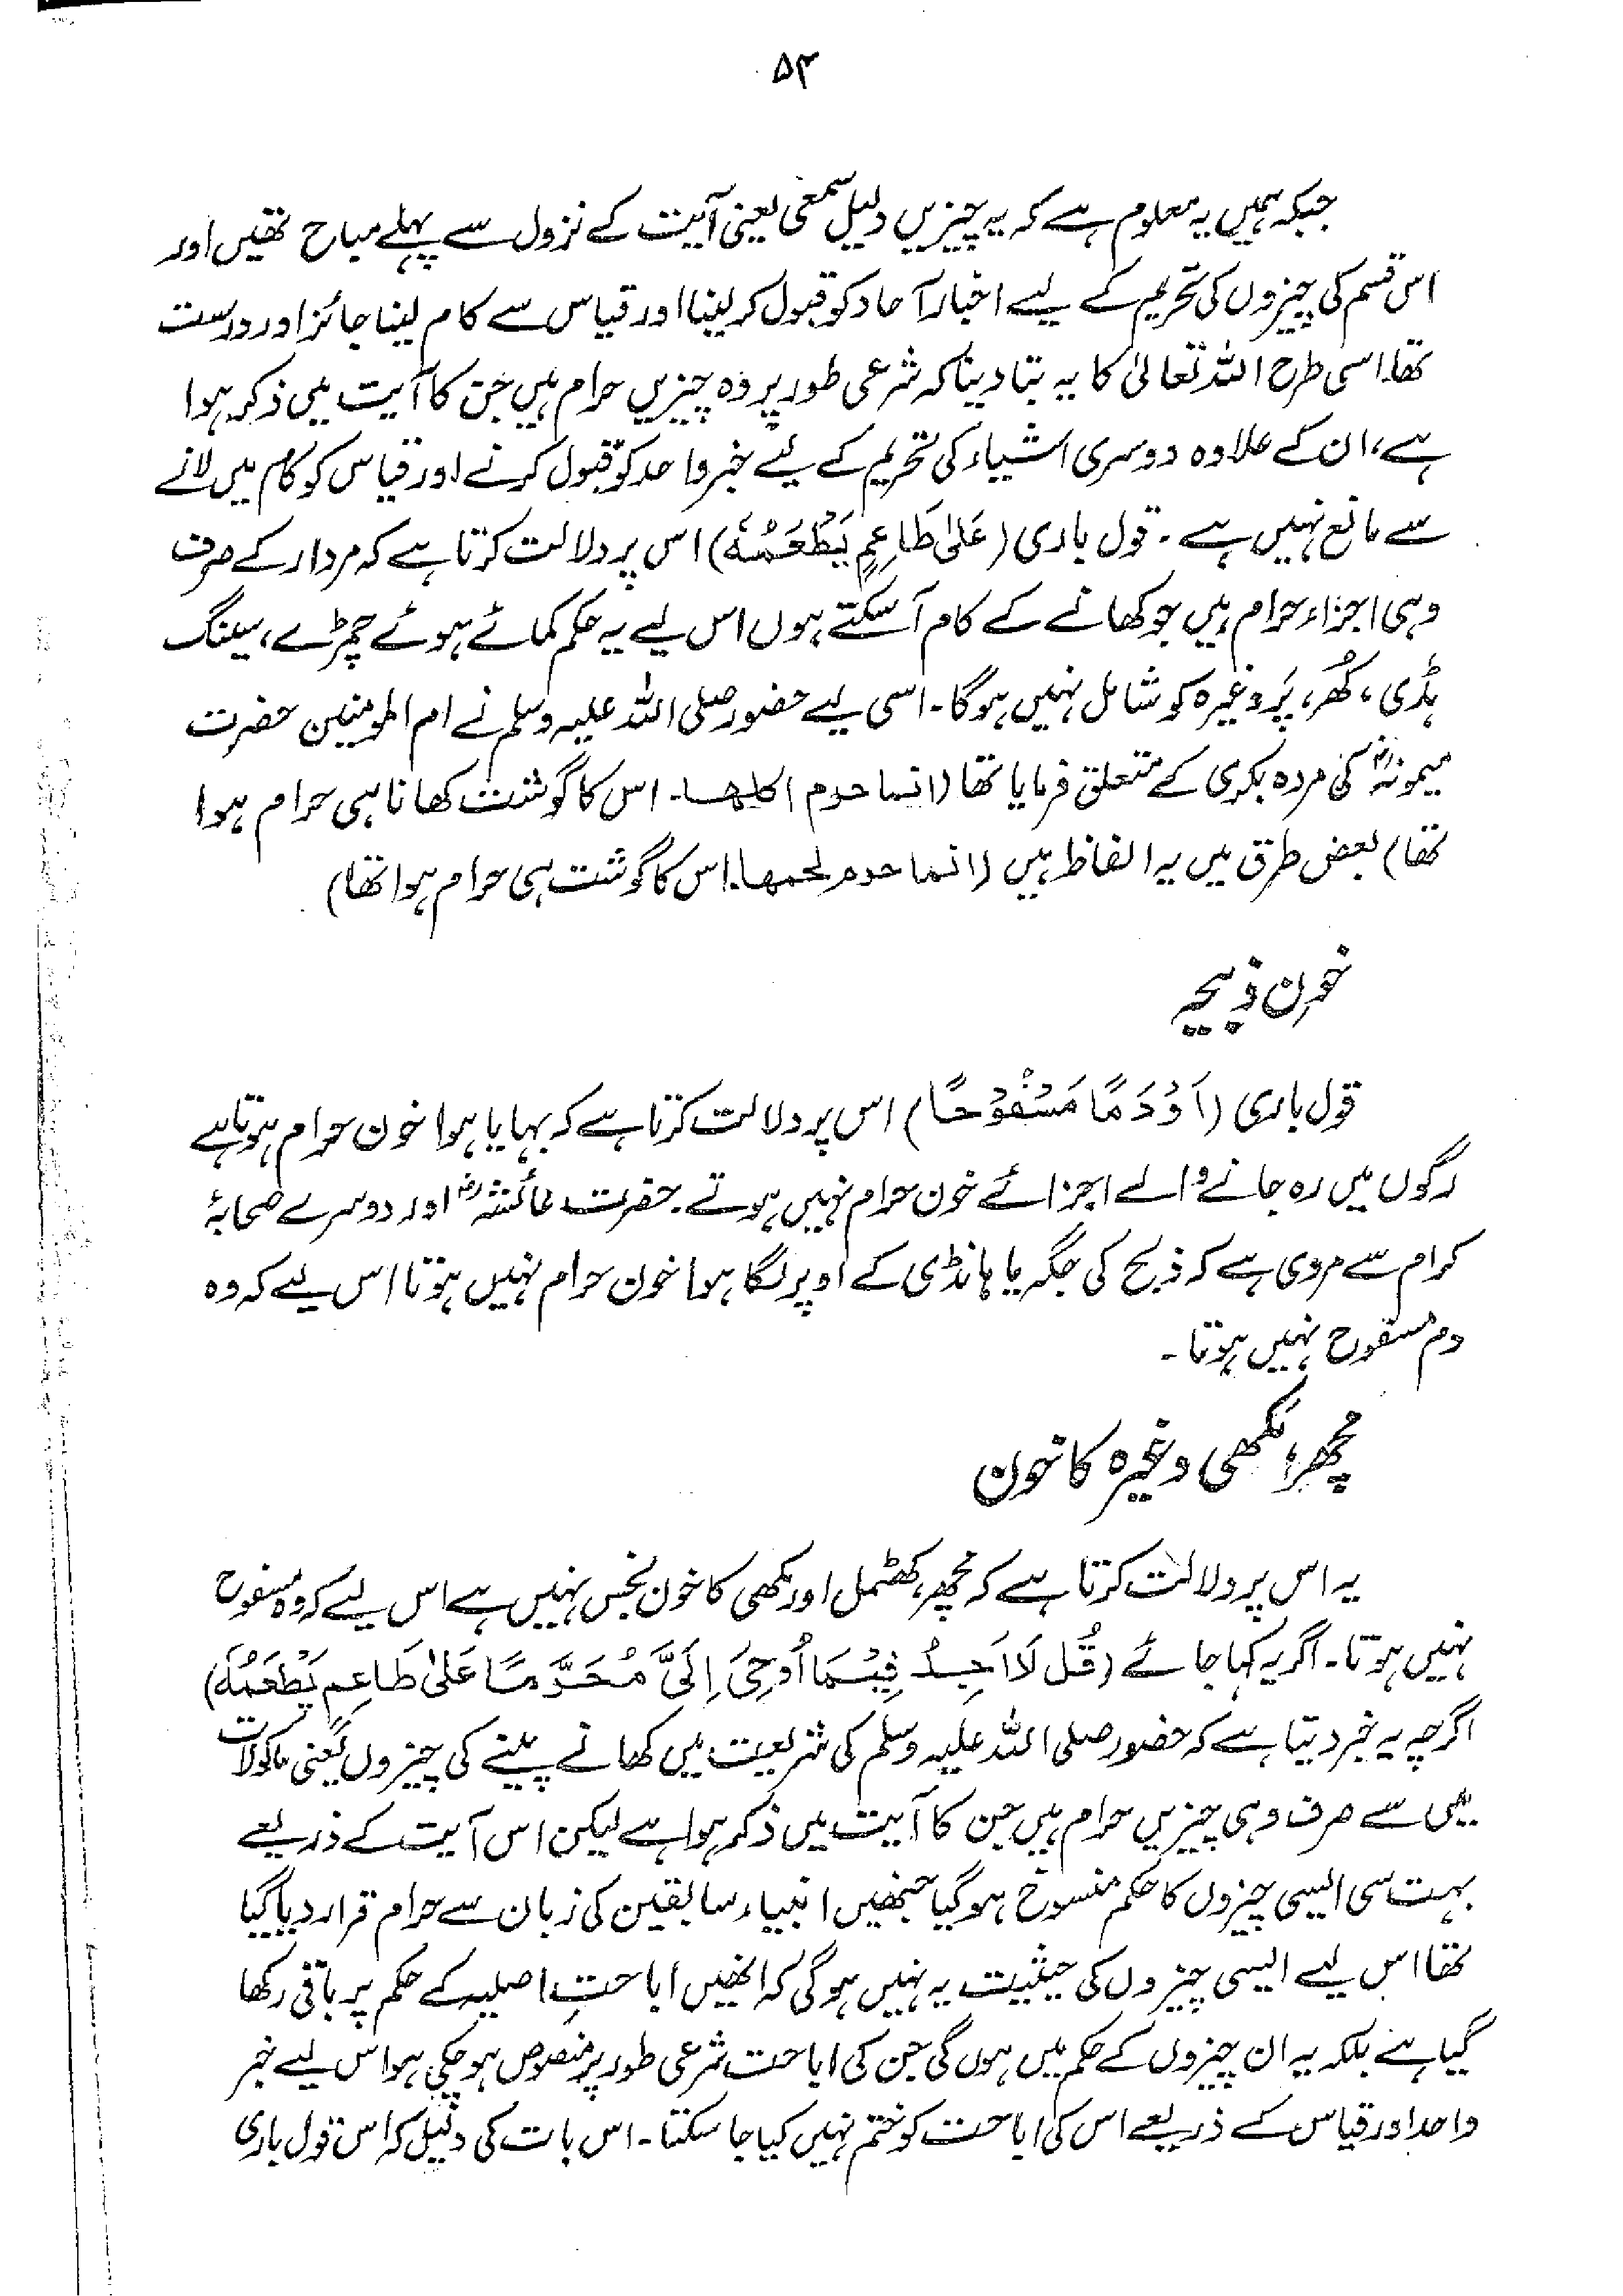 ۵۴
جبکہ ہمیں یہ معلوم ہے کہ یہ چیزیں دلیل سمعی یعنی آیت کے نزول سے پہلے مباح تھیں اور
اس قسم کی چیزوں کی تحریم کے لیے اخبار آحاد کو قبول کر لینا اور قیاس سے کام لینا جائز اور درست
تھا۔ اسی طرح اللہ تعالیٰ کا یہ بتا دینا کہ شرعی طور پر وہ چیزیں حرام ہیں جن کا آیت میں ذکر ہوا
ہے، ان کے علاوہ دوسری اشیاء کی تحریم کے لیے خبر واحد کو قبول کرنے اور قیاس کو کام میں لانے
سے مانع نہیں ہے۔ قول باری (عَلٰی طَاعِمٍ یَطْعَمُهٗ) اس پر دلالت کرتا ہے کہ مردار کے صرف
وہی اجزاء حرام ہیں جو کھانے کے کام آ سکتے ہوں اس لیے یہ حکم کمائے ہوئے چمڑے، سینگ
ہڈی، کُھر، پَر وغیرہ کو شامل نہیں ہوگا۔ اسی لیے حضور صلی اللہ علیہ وسلم نے ام المومنین حضرت
میمونہؓ کی مردہ بکری کے متعلق فرمایا تھا (انما حرم اکلھا۔ اس کا گوشت کھانا ہی حرام ہوا
تھا) بعض طرق میں یہ الفاظ ہیں (انما حرم لحمھا۔ اس کا گوشت ہی حرام ہوا تھا)
خونِ ذبیحہ
قول باری (اَوْ دَمًا مَسْفُوْحًا) اس پر دلالت کرتا ہے کہ بہایا ہوا خون حرام ہوتا ہے
رگوں میں رہ جانے والے اجزائے خون حرام نہیں ہوتے۔ حضرت عائشہؓ اور دوسرے صحابۂ
کرام سے مروی ہے کہ ذبح کی جگہ یا ہانڈی کے اوپر لگا ہوا خون حرام نہیں ہوتا اس لیے کہ وہ
دم مسفوح نہیں ہوتا۔
مچھر، مکھی وغیرہ کا خون
یہ اس پر دلالت کرتا ہے کہ مچھر، کھٹمل اور مکھی کا خون نجس نہیں ہے اس لیے کہ وہ مسفوح
نہیں ہوتا۔ اگر یہ کہا جائے (قُل لَّا اَجِدُ فِیْمَا اُوْحِیَ اِلَیَّ مُحَرَّمًا عَلٰی طَاعِمٍ یَطْعَمُهٗ)
اگرچہ یہ خبر دیتا ہے کہ حضور صلی اللہ علیہ وسلم کی شریعت میں کھانے پینے کی چیزوں یعنی ماکولات
میں سے صرف وہی چیزیں حرام ہیں جن کا آیت میں ذکر ہوا ہے لیکن اس آیت کے ذریعے
بہت سی ایسی چیزوں کا حکم منسوخ ہو گیا جنھیں انبیاء سابقین کی زبان سے حرام قرار دیا گیا
تھا اس لیے ایسی چیزوں کی حیثیت یہ نہیں ہوگی کہ انھیں اباحتِ اصلیہ کے حکم پر باقی رکھا
گیا ہے بلکہ یہ ان چیزوں کے حکم میں ہوں گی جن کی اباحت شرعی طور پر منصوص ہو چکی ہو اس لیے خبر
واحد اور قیاس کے ذریعے اس کی اباحت کو ختم نہیں کیا جا سکتا۔ اس بات کی دلیل کہ اس قول باری